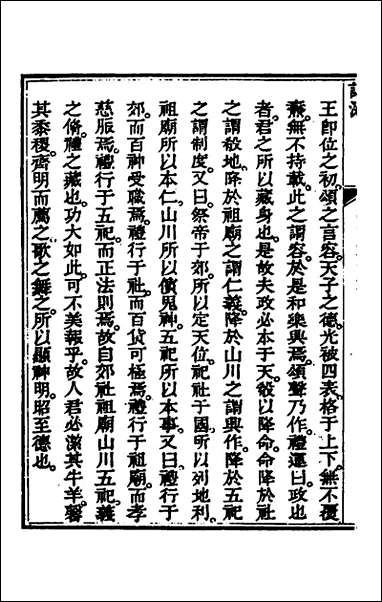 王即位之初。頌之言容。天子之德。光被四表。格于上下。無不覆
燾。無不持載。此之謂容。於是和樂興焉。頌聲乃作。禮運曰。政也
者。君之所以藏身也。是故夫政必本于天。殽以降命。命降於社
之謂殽地。降於祖廟之謂仁義。降於山川之謂興作。降於五祀
之謂制度。又曰。祭帝于郊。所以定天位。祀社于國。所以列地利。
祖廟所以本仁。山川所以儐鬼神。五祀所以本事。又曰。禮行于
郊。而百神受職焉。禮行于社。而百貨可極焉。禮行于祖廟。而孝
慈服焉。禮行于五祀。而正法則焉。故自郊社祖廟山川五祀。義
之脩。禮之藏也。功大如此。可不美報乎。故人君必潔其牛羊。馨
其黍稷。齊明而薦之。歌之舞之。所以顯神明。昭至德也。